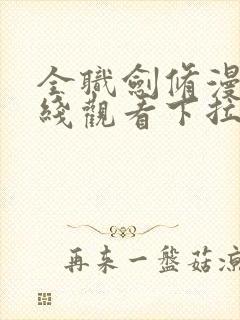 全職劍脩漫
綫觀看下拉
再來一盤菇涼